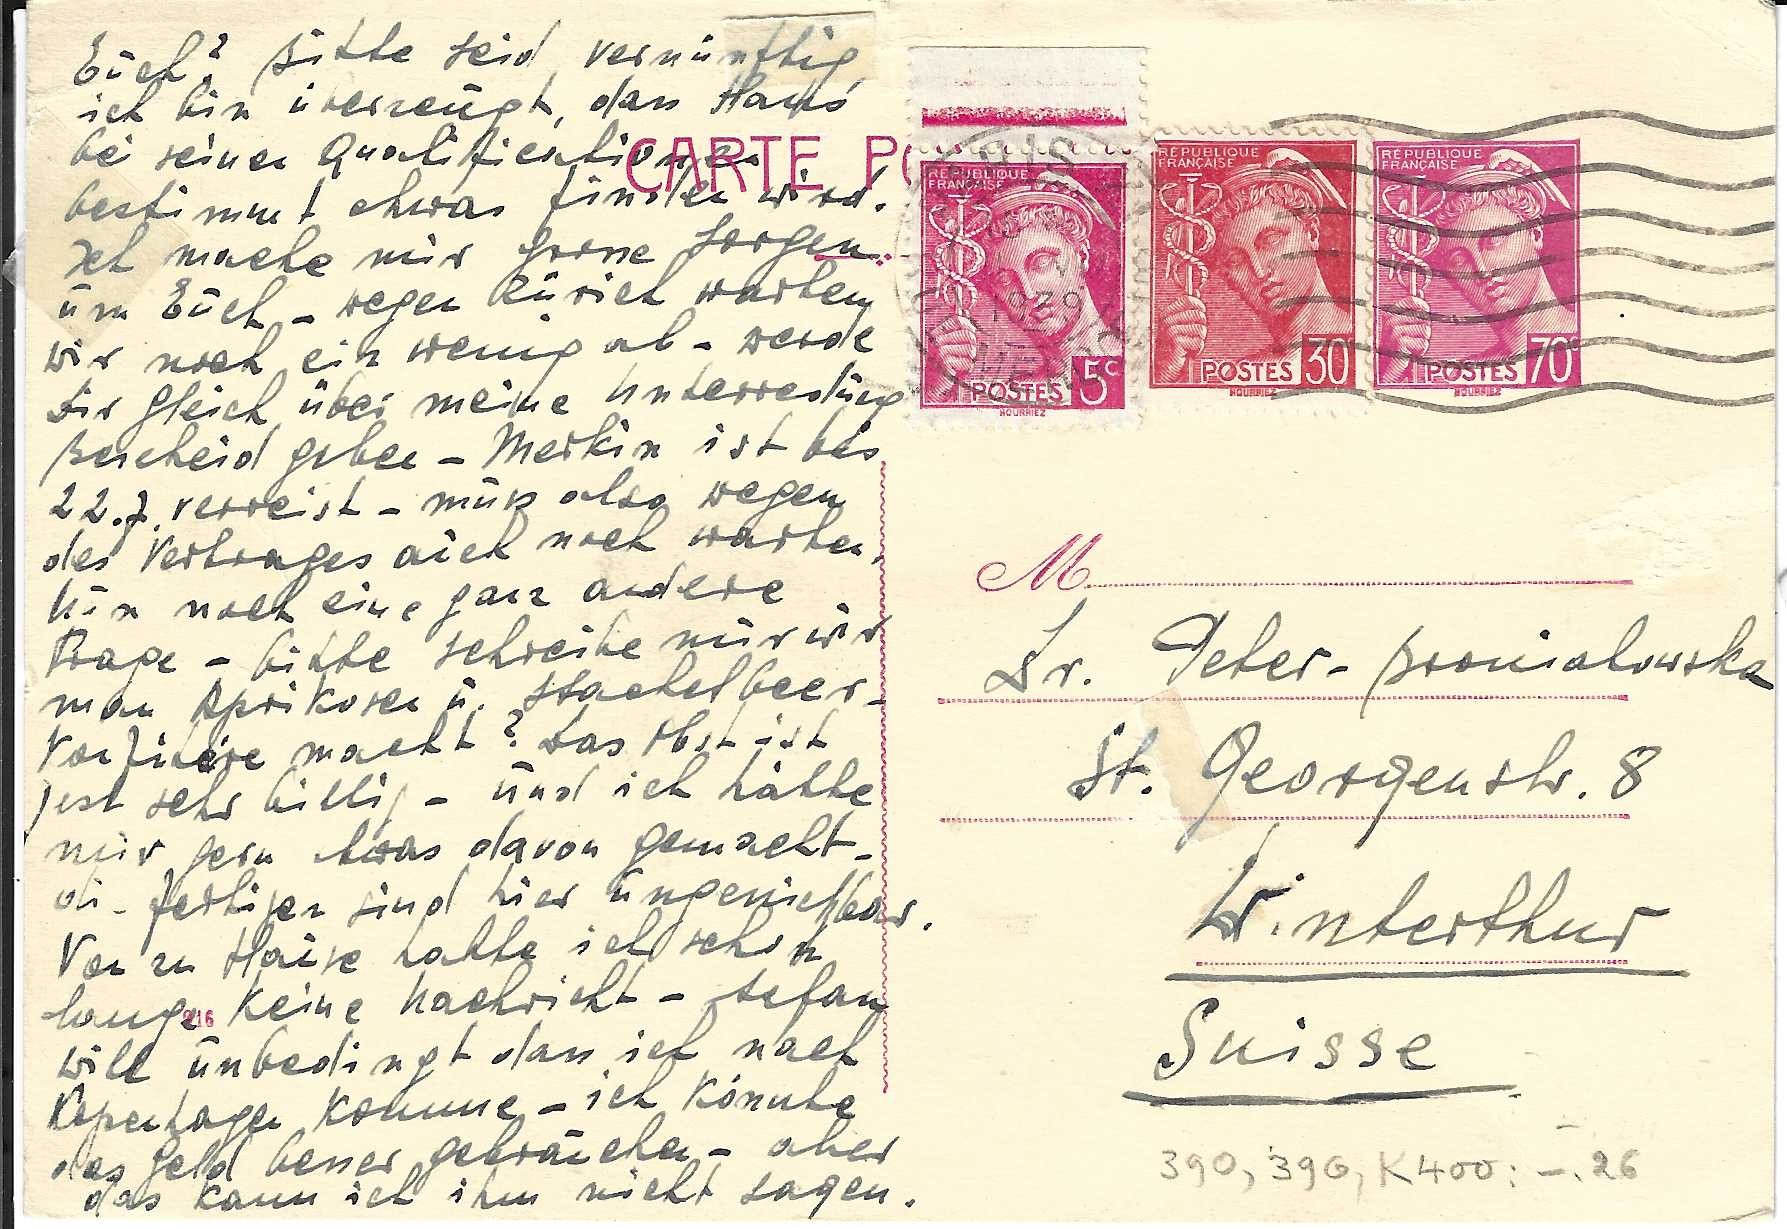 Euch? Bitte seid vernünftig
ich bin überzeugt, dass Hans
bei seinen Qualifikationen
bestimmt etwas finden wird.
Ich mache mir grosse Sorgen
um Euch – wegen Zürich warten
wir noch ein wenig ab – werde
Dir gleich über meine Unterredung
Bescheid geben – Merkin ist bis
22.7. verreist – muss also wegen
des Vertrages auch noch warten.
Nun noch eine ganz andere
Frage – bitte schreibe mir wie
man Aprikosen u. Stachelbeer-
Konfitüre macht? Das Obst ist
jetzt sehr billig – und ich hätte
mir gern etwas davon gemacht –
die fertigen sind hier ungeniessbar.
Von zu Hause hatte ich schon
lange keine Nachricht – Stefan
will unbedingt dass ich nach
Kopenhagen komme – ich könnte
das Geld besser gebrauchen – aber
das kann ich ihm nicht sagen.
CARTE PO
216
RÉPUBLIQUE
FRANÇAISE
POSTES 5c
HOURRIEZ
RÉPUBLIQUE
FRANÇAISE
POSTES 30c
HOURRIEZ
RÉPUBLIQUE
FRANÇAISE
POSTES 70c
HOURRIEZ
1939
M
Dr. Peter-Bronialowska
St. Georgenstr. 8
Winterthur
Suisse
390, 390, K400: –.26